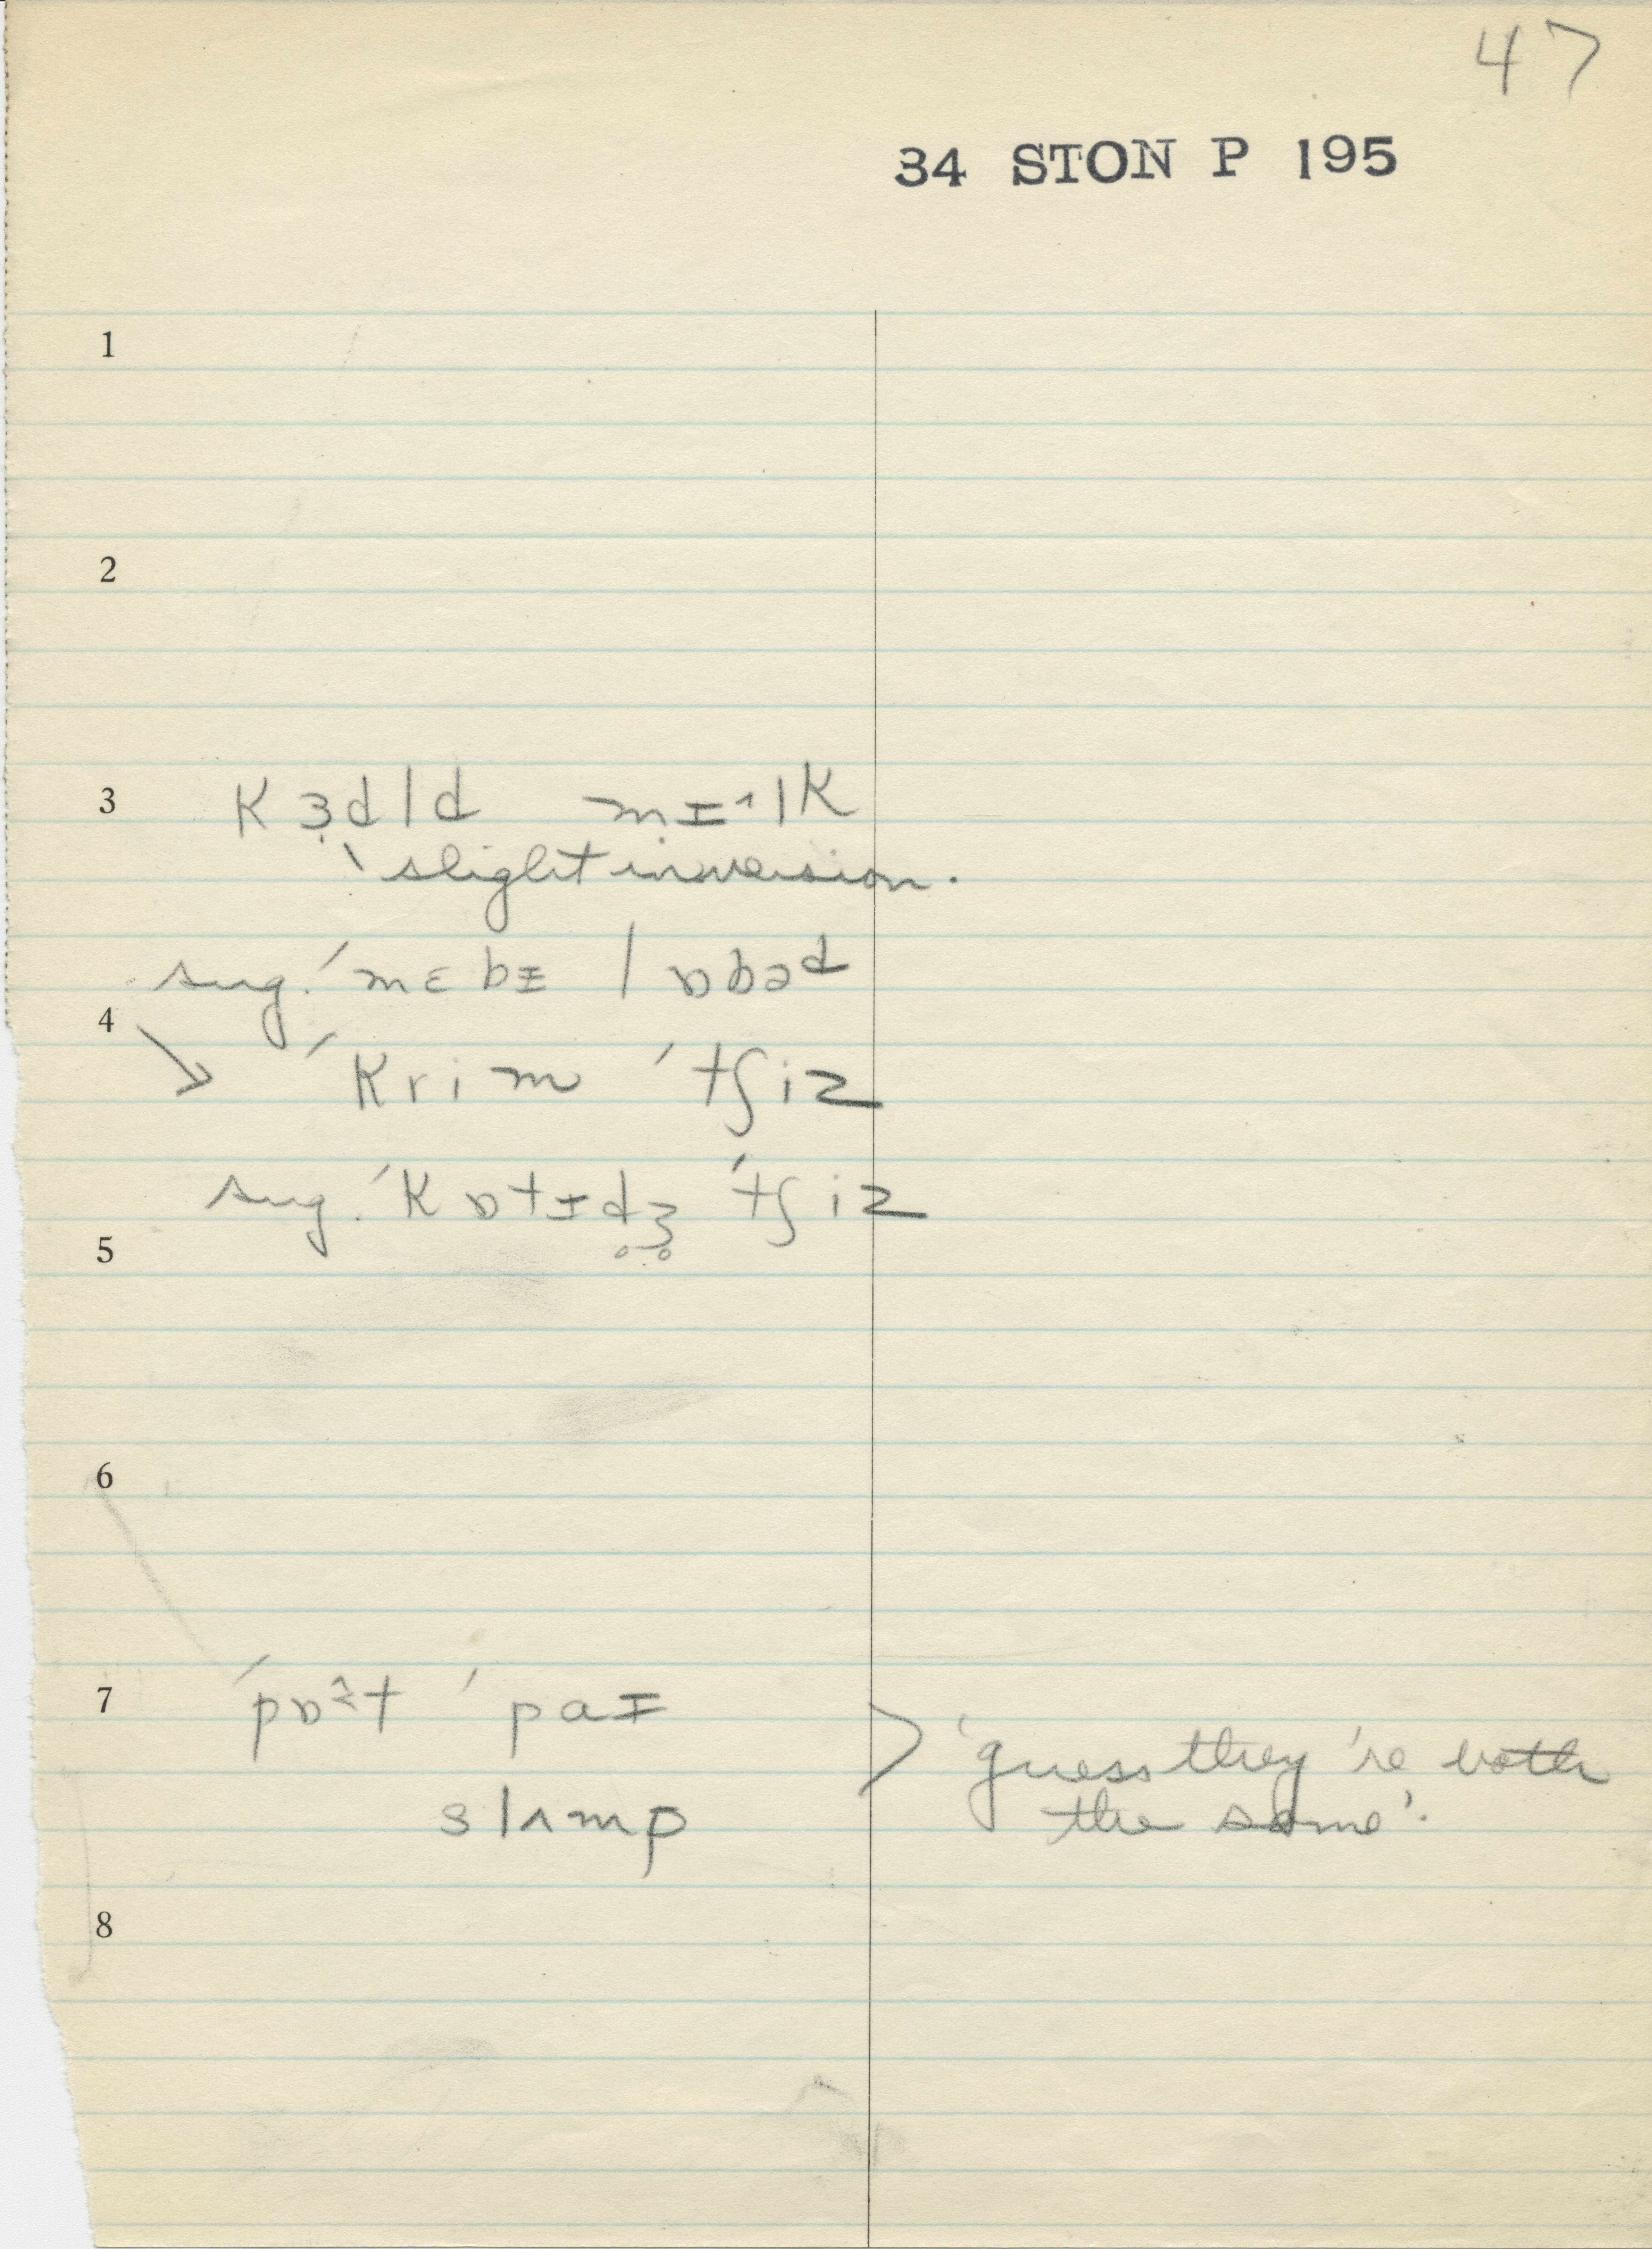 47
34 STON P 195
1
2
3 kɜdld mɪᶺlk
slight inversion.
sug. ˊmɛbɪ lɒbəd
4
ˊkrim ˊtʃiz
sug. ˊkɒtɪd̥ʒ̥ ˊtʃiz
5
6
7 ˊpɒˀt ˊpaɪ
'guess they're both
slʌmp the same'.
8